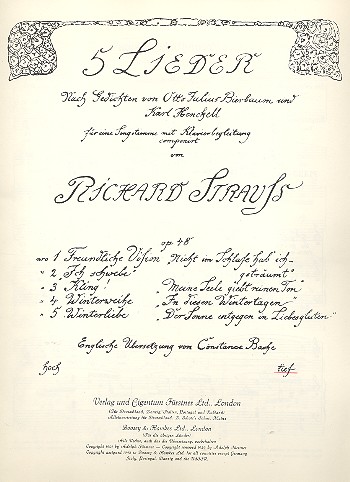 5 LIEDER
Nach Gedichten von Otto Julius Bierbaum und
Karl Henckell
für eine Singstimme mit Klavierbegleitung
componirt
von
RICHARD STRAUSS
op 48
No 1 Freundliche Vision „Nicht im Schlafe hab' ich-
geträumt"
" 2 „Ich schwebe"
" 3 Kling! „Meine Seele giebt reinen Ton"
" 4 Winterweihe „In diesen Wintertagen"
" 5 Winterliebe „Der Sonne entgegen in Liebesgluten"
Englische Übersetzung von Constance Bache
hoch tief
Verlag und Eigentum Fürstner Ltd., London
Boosey & Hawkes Ltd., London